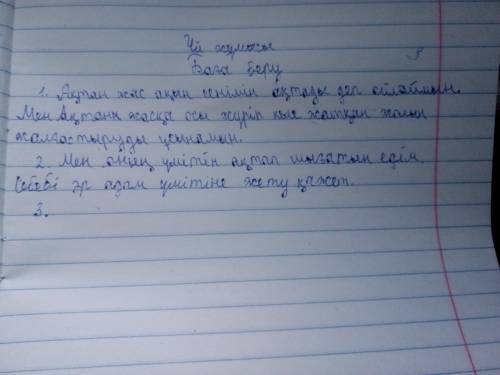 Үй жұмысы
Баға беру
1. Ақтан жас ақын сенімін ақтады деп ойлаймын.
Мен Ақтанға жасқа осы жүріп жатқан жолын
жалғастыруды ұсынамын.
2. Мен оның үмітін ақтап шығатын едім.
Себебі әр адам үмітіне жету қажет.
3.